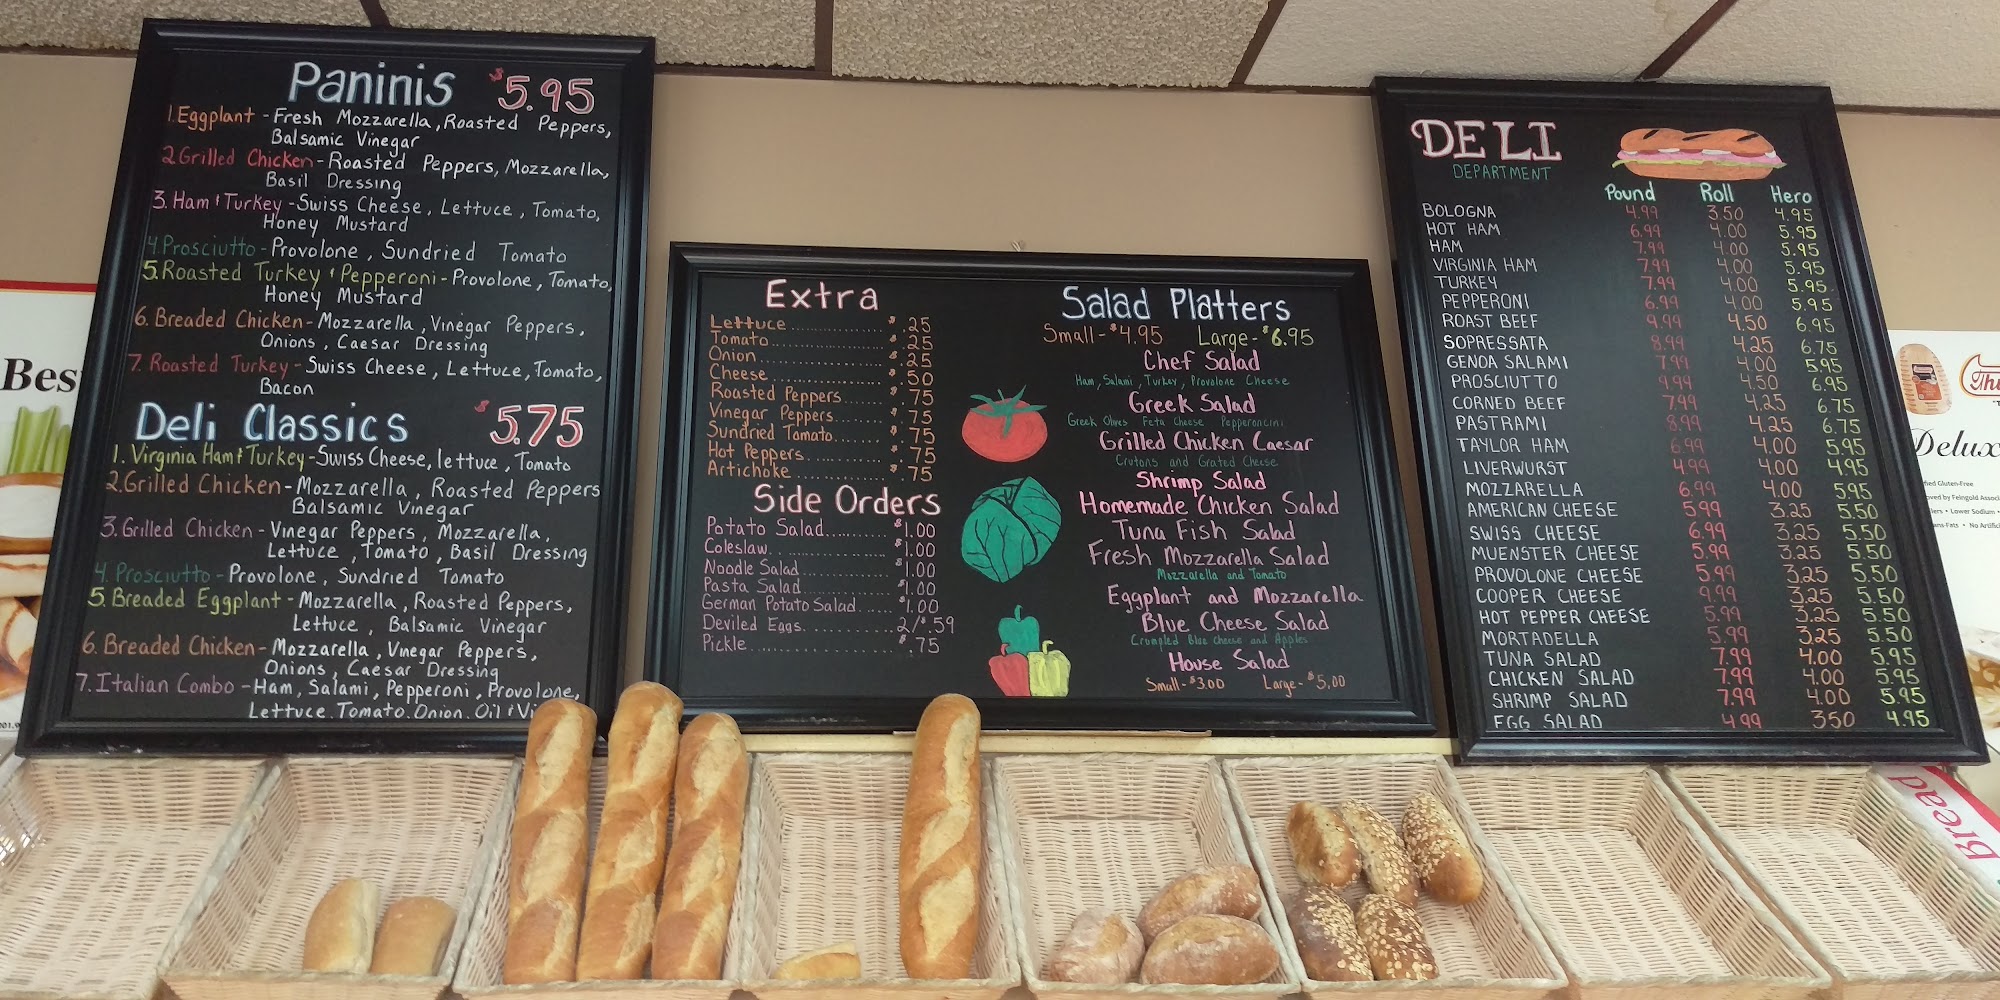 Paninis $5.95
1. Eggplant - Fresh Mozzarella, Roasted Peppers,
Balsamic Vinegar
2 Grilled Chicken - Roasted Peppers, Mozzarella,
Basil Dressing
3. Ham & Turkey - Swiss Cheese, Lettuce, Tomato,
Honey Mustard
4. Prosciutto - Provolone, Sundried Tomato
5. Roasted Turkey & Pepperoni - Provolone, Tomato,
Honey Mustard
6. Breaded Chicken - Mozzarella, Vinegar Peppers,
Onions, Caesar Dressing
7. Roasted Turkey - Swiss Cheese, Lettuce, Tomato,
Bacon
Deli Classics $5.75
1. Virginia Ham & Turkey - Swiss Cheese, lettuce, Tomato
2. Grilled Chicken - Mozzarella, Roasted Peppers
Balsamic Vinegar
3. Grilled Chicken - Vinegar Peppers, Mozzarella,
Lettuce, Tomato, Basil Dressing
4. Prosciutto - Provolone, Sundried Tomato
5. Breaded Eggplant - Mozzarella, Roasted Peppers,
Lettuce, Balsamic Vinegar
6. Breaded Chicken - Mozzarella, Vinegar Peppers,
Onions, Caesar Dressing
7. Italian Combo - Ham, Salami, Pepperoni, Provolone,
Lettuce, Tomato, Onion, Oil & Vi
Extra
Lettuce $.25
Tomato $.25
Onion $.25
Cheese $.50
Roasted Peppers $.75
Vinegar Peppers $.75
Sundried Tomato $.75
Hot Peppers $.75
Artichoke $.75
Side Orders
Potato Salad $1.00
Coleslaw $1.00
Noodle Salad $1.00
Pasta Salad $1.00
German Potato Salad $1.00
Deviled Eggs 2/$.59
Pickle $.75
Salad Platters
Small - $4.95 Large - $6.95
Chef Salad
Ham, Salami, Turkey, Provolone Cheese
Greek Salad
Greek Olives Feta Cheese Pepperoncini
Grilled Chicken Caesar
Crutons and Grated Cheese
Shrimp Salad
Homemade Chicken Salad
Tuna Fish Salad
Fresh Mozzarella Salad
Mozzarella and Tomato
Eggplant and Mozzarella
Blue Cheese Salad
Crumpled Blue Cheese and Apples
House Salad
Small - $3.00 Large - $5.00
DELI
DEPARTMENT
Pound Roll Hero
BOLOGNA 4.99 3.50 4.95
HOT HAM 6.99 4.00 5.95
HAM 7.99 4.00 5.95
VIRGINIA HAM 7.99 4.00 5.95
TURKEY 7.99 4.00 5.95
PEPPERONI 6.99 4.00 5.95
ROAST BEEF 9.99 4.50 6.95
SOPRESSATA 8.99 4.25 6.75
GENOA SALAMI 7.99 4.00 5.95
PROSCIUTTO 9.99 4.50 6.95
CORNED BEEF 7.99 4.25 6.75
PASTRAMI 8.99 4.25 6.75
TAYLOR HAM 6.99 4.00 5.95
LIVERWURST 4.99 4.00 4.95
MOZZARELLA 6.99 4.00 5.95
AMERICAN CHEESE 5.99 3.25 5.50
SWISS CHEESE 6.99 3.25 5.50
MUENSTER CHEESE 5.99 3.25 5.50
PROVOLONE CHEESE 5.99 3.25 5.50
COOPER CHEESE 9.99 3.25 5.50
HOT PEPPER CHEESE 5.99 3.25 5.50
MORTADELLA 5.99 3.25 5.50
TUNA SALAD 7.99 4.00 5.95
CHICKEN SALAD 7.99 4.00 5.95
SHRIMP SALAD 7.99 4.00 5.95
EGG SALAD 4.99 3.50 4.95
Bes
Delux
Bread